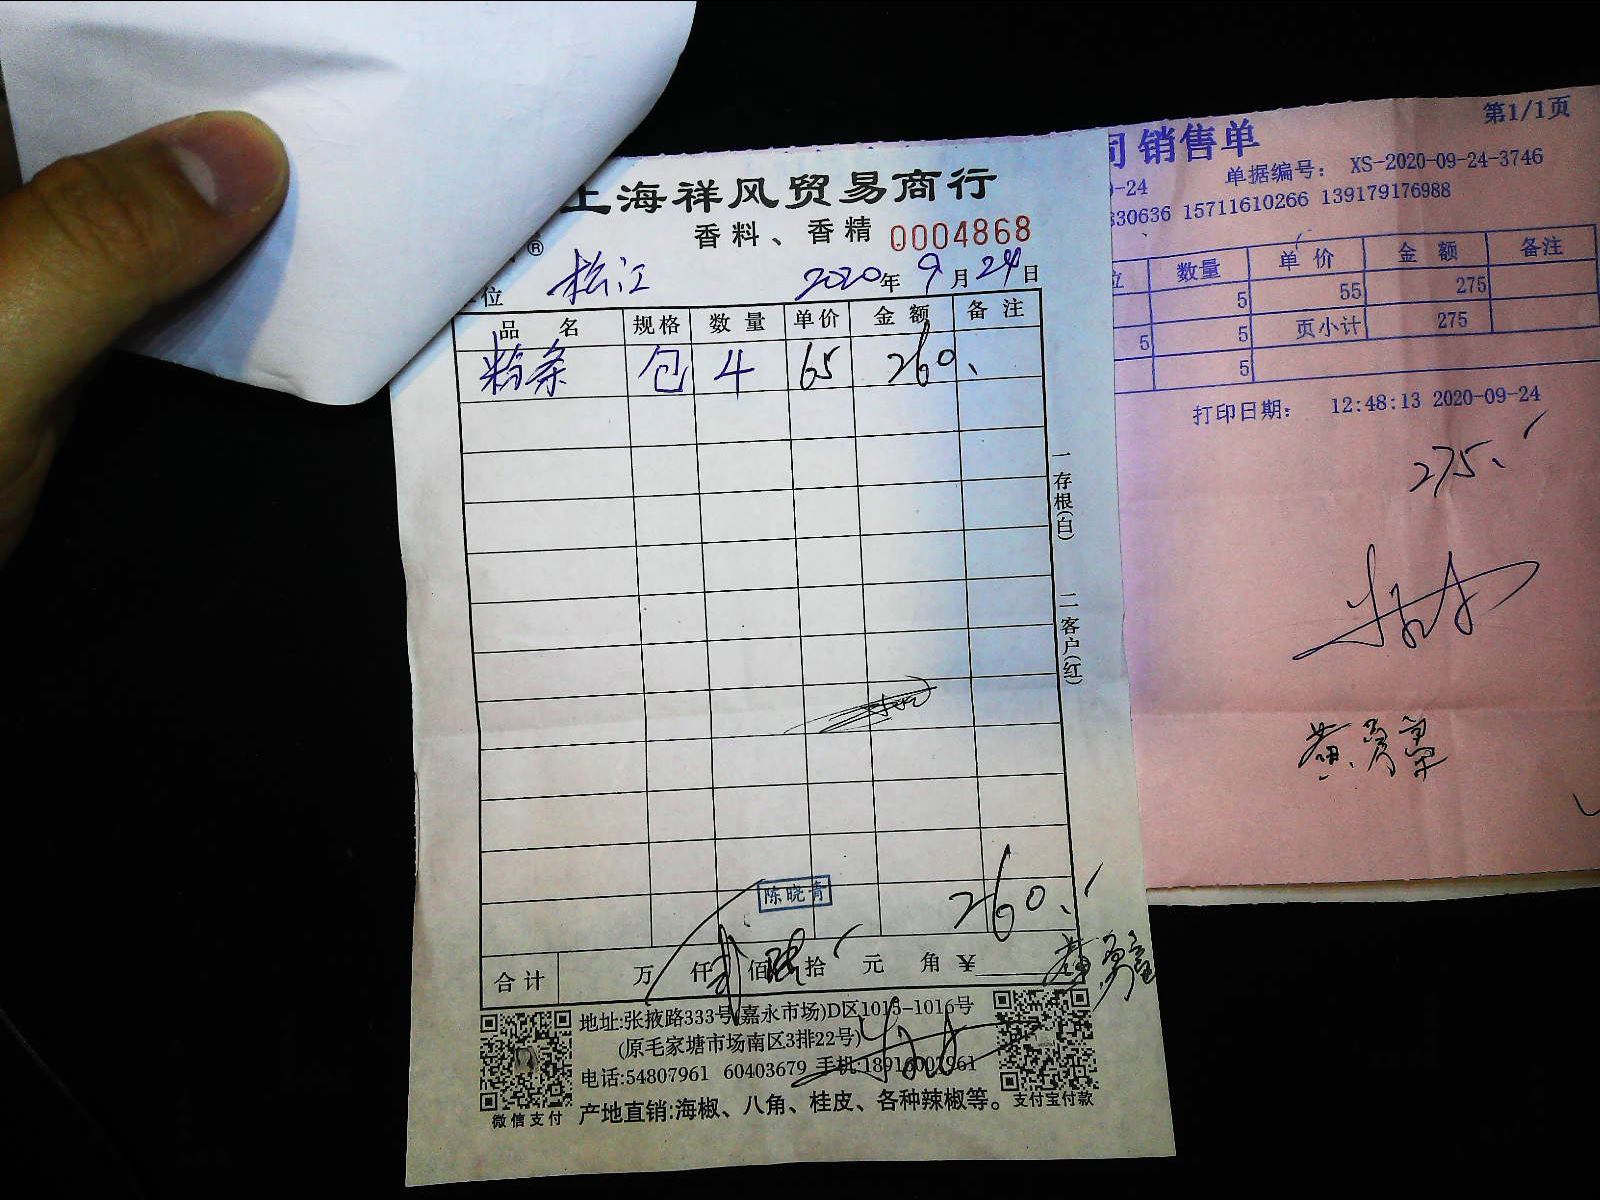 上海祥风贸易商行
香料、香精 0004868
®
位 松江 2020年9月24日
品名 规格 数量 单价 金额 备注
包 4 65 260
一存根(白)
二客户(红)
陈晓青
260
合计 万 仟 贰佰 陆拾 元 角 ¥
地址:张掖路333号(嘉永市场)D区1015-1016号
(原毛家塘市场南区3排22号)
电话:54807961 60403679 手机:
产地直销:海椒、八角、桂皮、各种辣椒等。
微信支付
支付宝付款
第1/1页
司 销售单
-24 单据编号: XS-2020-09-24-3746
330636 15711610266 139179176988
位 数量 单价 金额 备注
5 55 275
5 5 页小计 275
5
打印日期: 12:48:13 2020-09-24
275